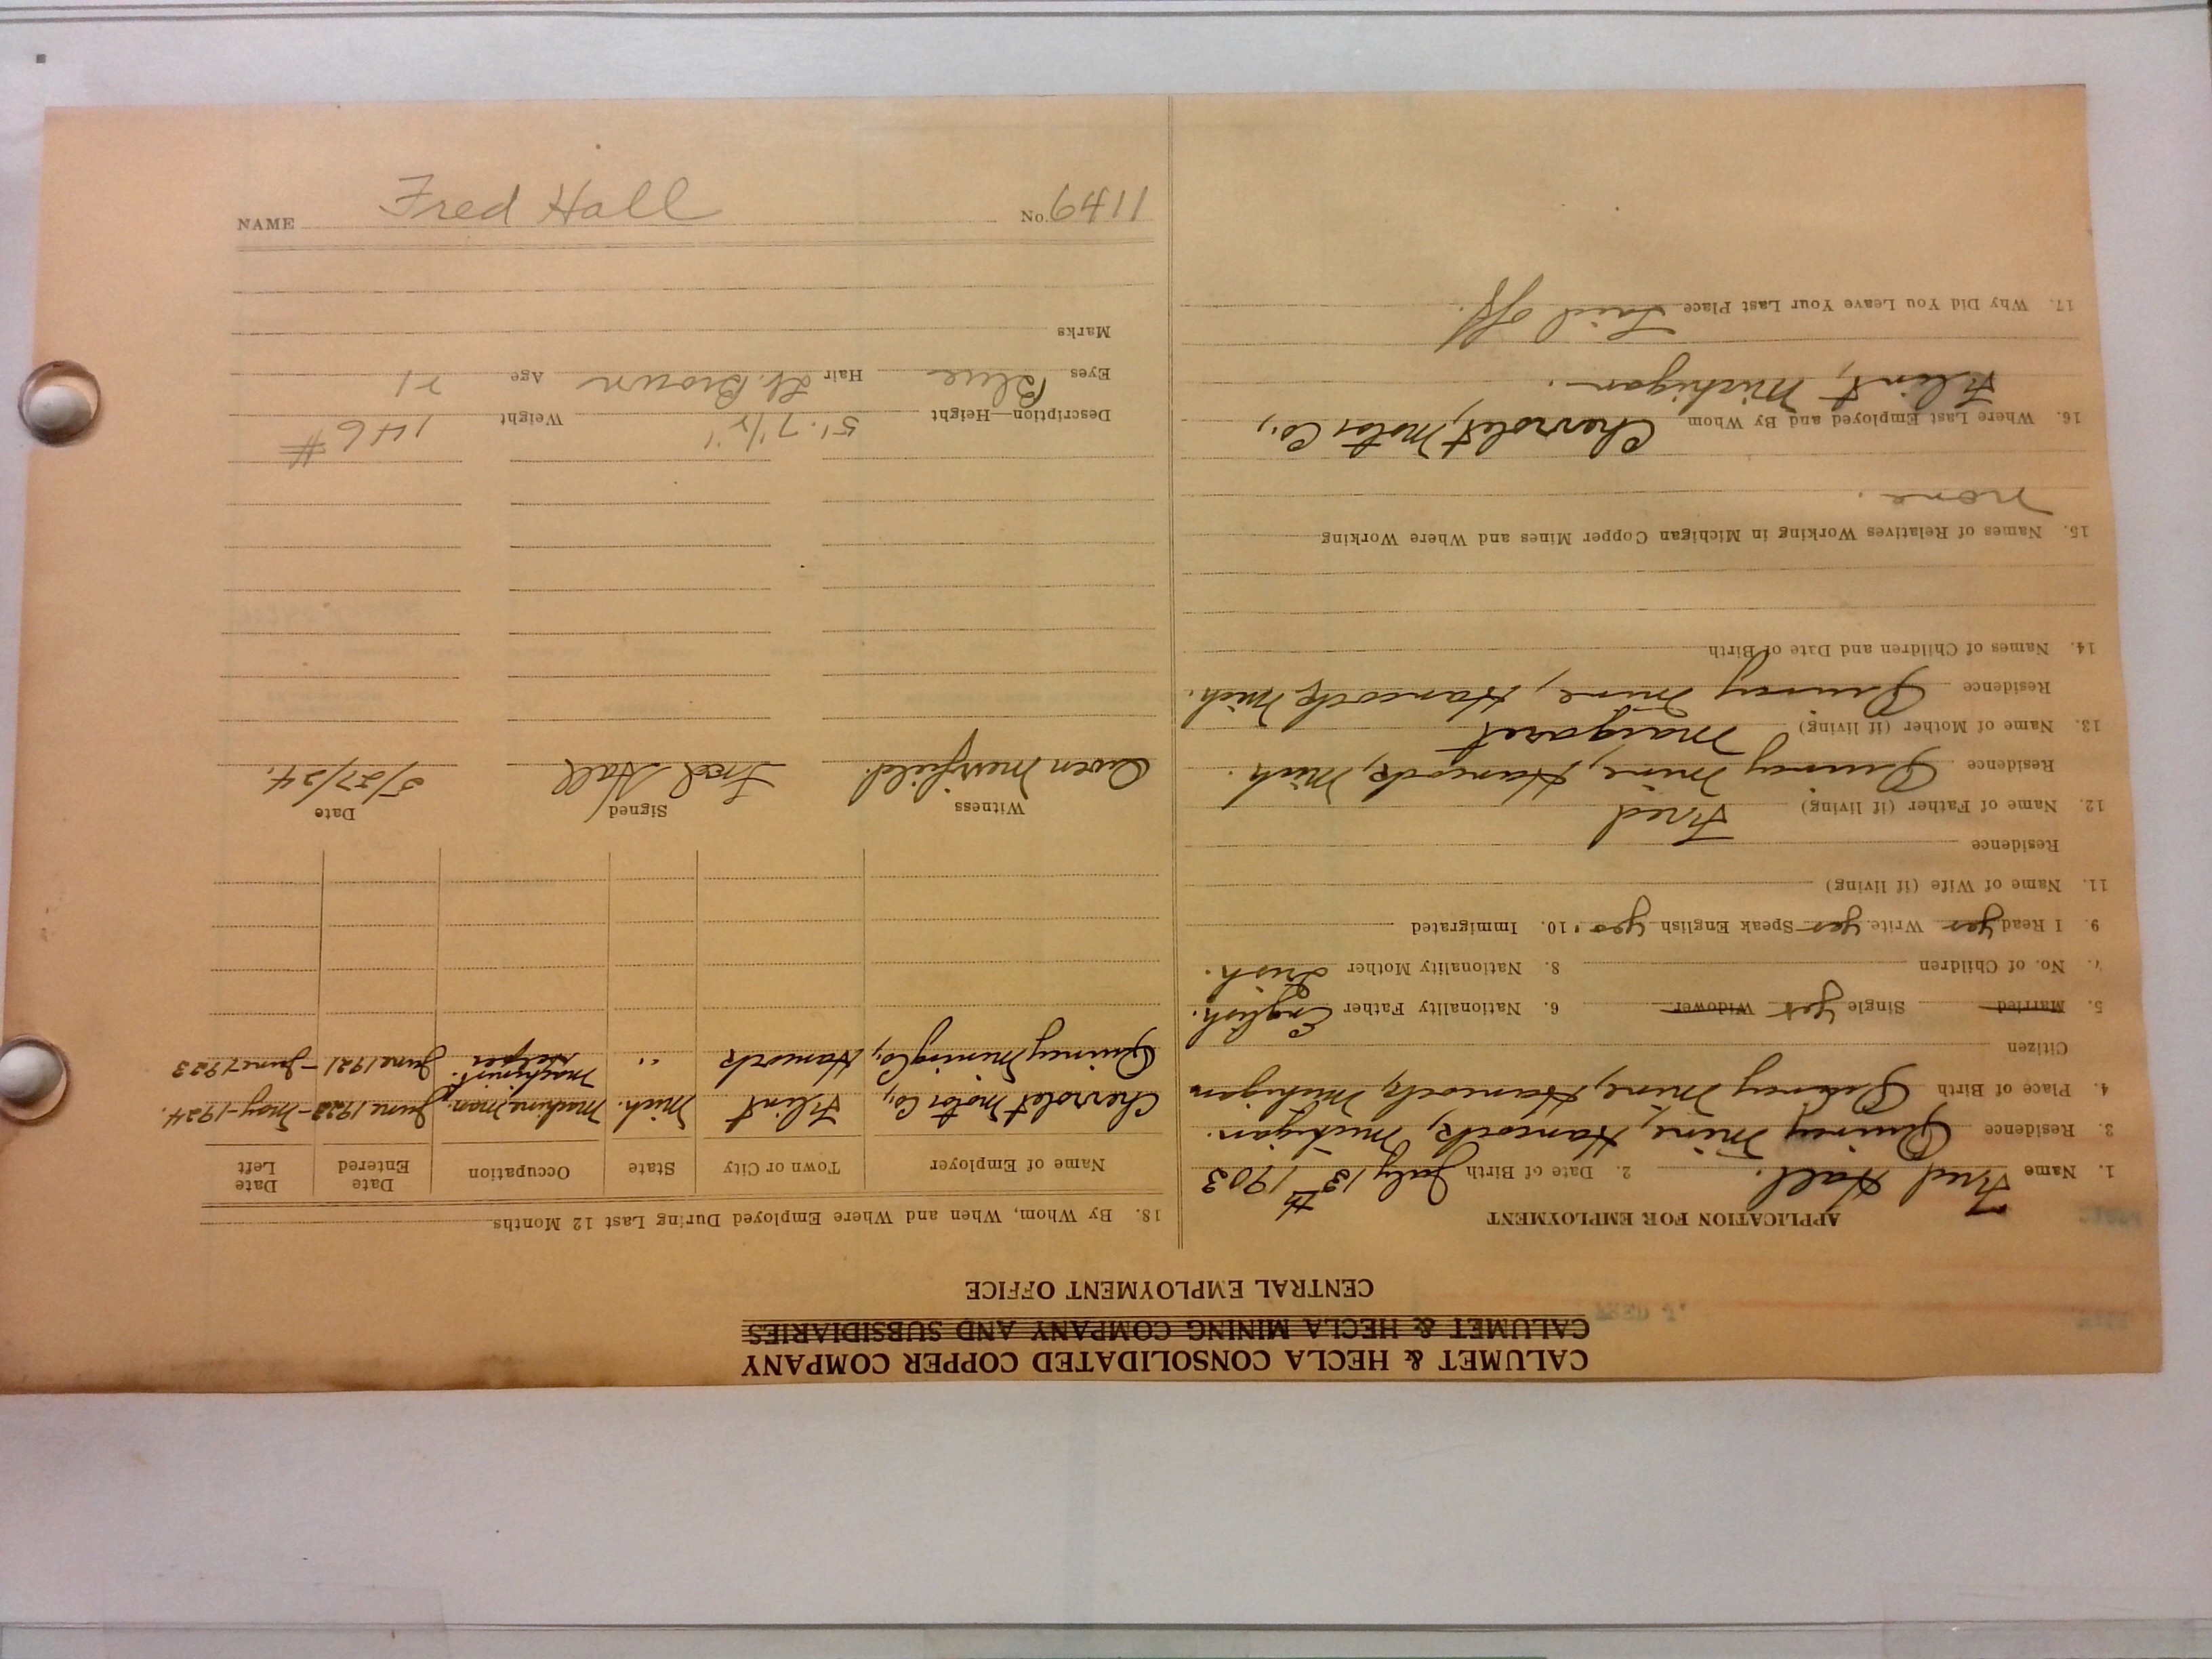 CALUMET & HECLA CONSOLIDATED COPPER COMPANY
CALUMET & HECLA MINING COMPANY AND SUBSIDIARIES
CENTRAL EMPLOYMENT OFFICE
APPLICATION FOR EMPLOYMENT
1. Name Fred Hall. 2. Date of Birth July 13th 1903
3. Residence Quincy Mine, Hancock, Michigan.
4. Place of Birth Quincy Mine, Hancock, Michigan
Citizen
5. Married Single yes Widower 6. Nationality Father English.
7. No. of Children 8. Nationality Mother Irish.
9. I Read yes Write yes Speak English yes. 10. Immigrated
11. Name of Wife (if living)
Residence
12. Name of Father (if living) Fred
Residence Quincy Mine, Hancock, Mich.
13. Name of Mother (if living) Margaret
Residence Quincy Mine, Hancock, Mich.
14. Names of Children and Date of Birth
15. Names of Relatives Working in Michigan Copper Mines and Where Working
None.
16. Where Last Employed and By Whom Chevrolet Motor Co.,
Flint, Michigan.
17. Why Did You Leave Your Last Place Laid off.
18. By Whom, When and Where Employed During Last 12 Months
Name of Employer Town or City State Occupation Date Entered Date Left
Chevrolet Motor Co., Flint Mich. Machine man. June 1923 - May - 1924.
Quincy Mining Co., Hancock " Machinist Helper June 1921 - June 1923
Witness Signed Date
Owen Merrfield. Fred Hall 5/27/24.
Description—Height 5'. 7 1/2" Weight 146 #
Eyes Blue Hair Lt. Brown Age 21
Marks
NAME Fred Hall No. 6411
FRED J.